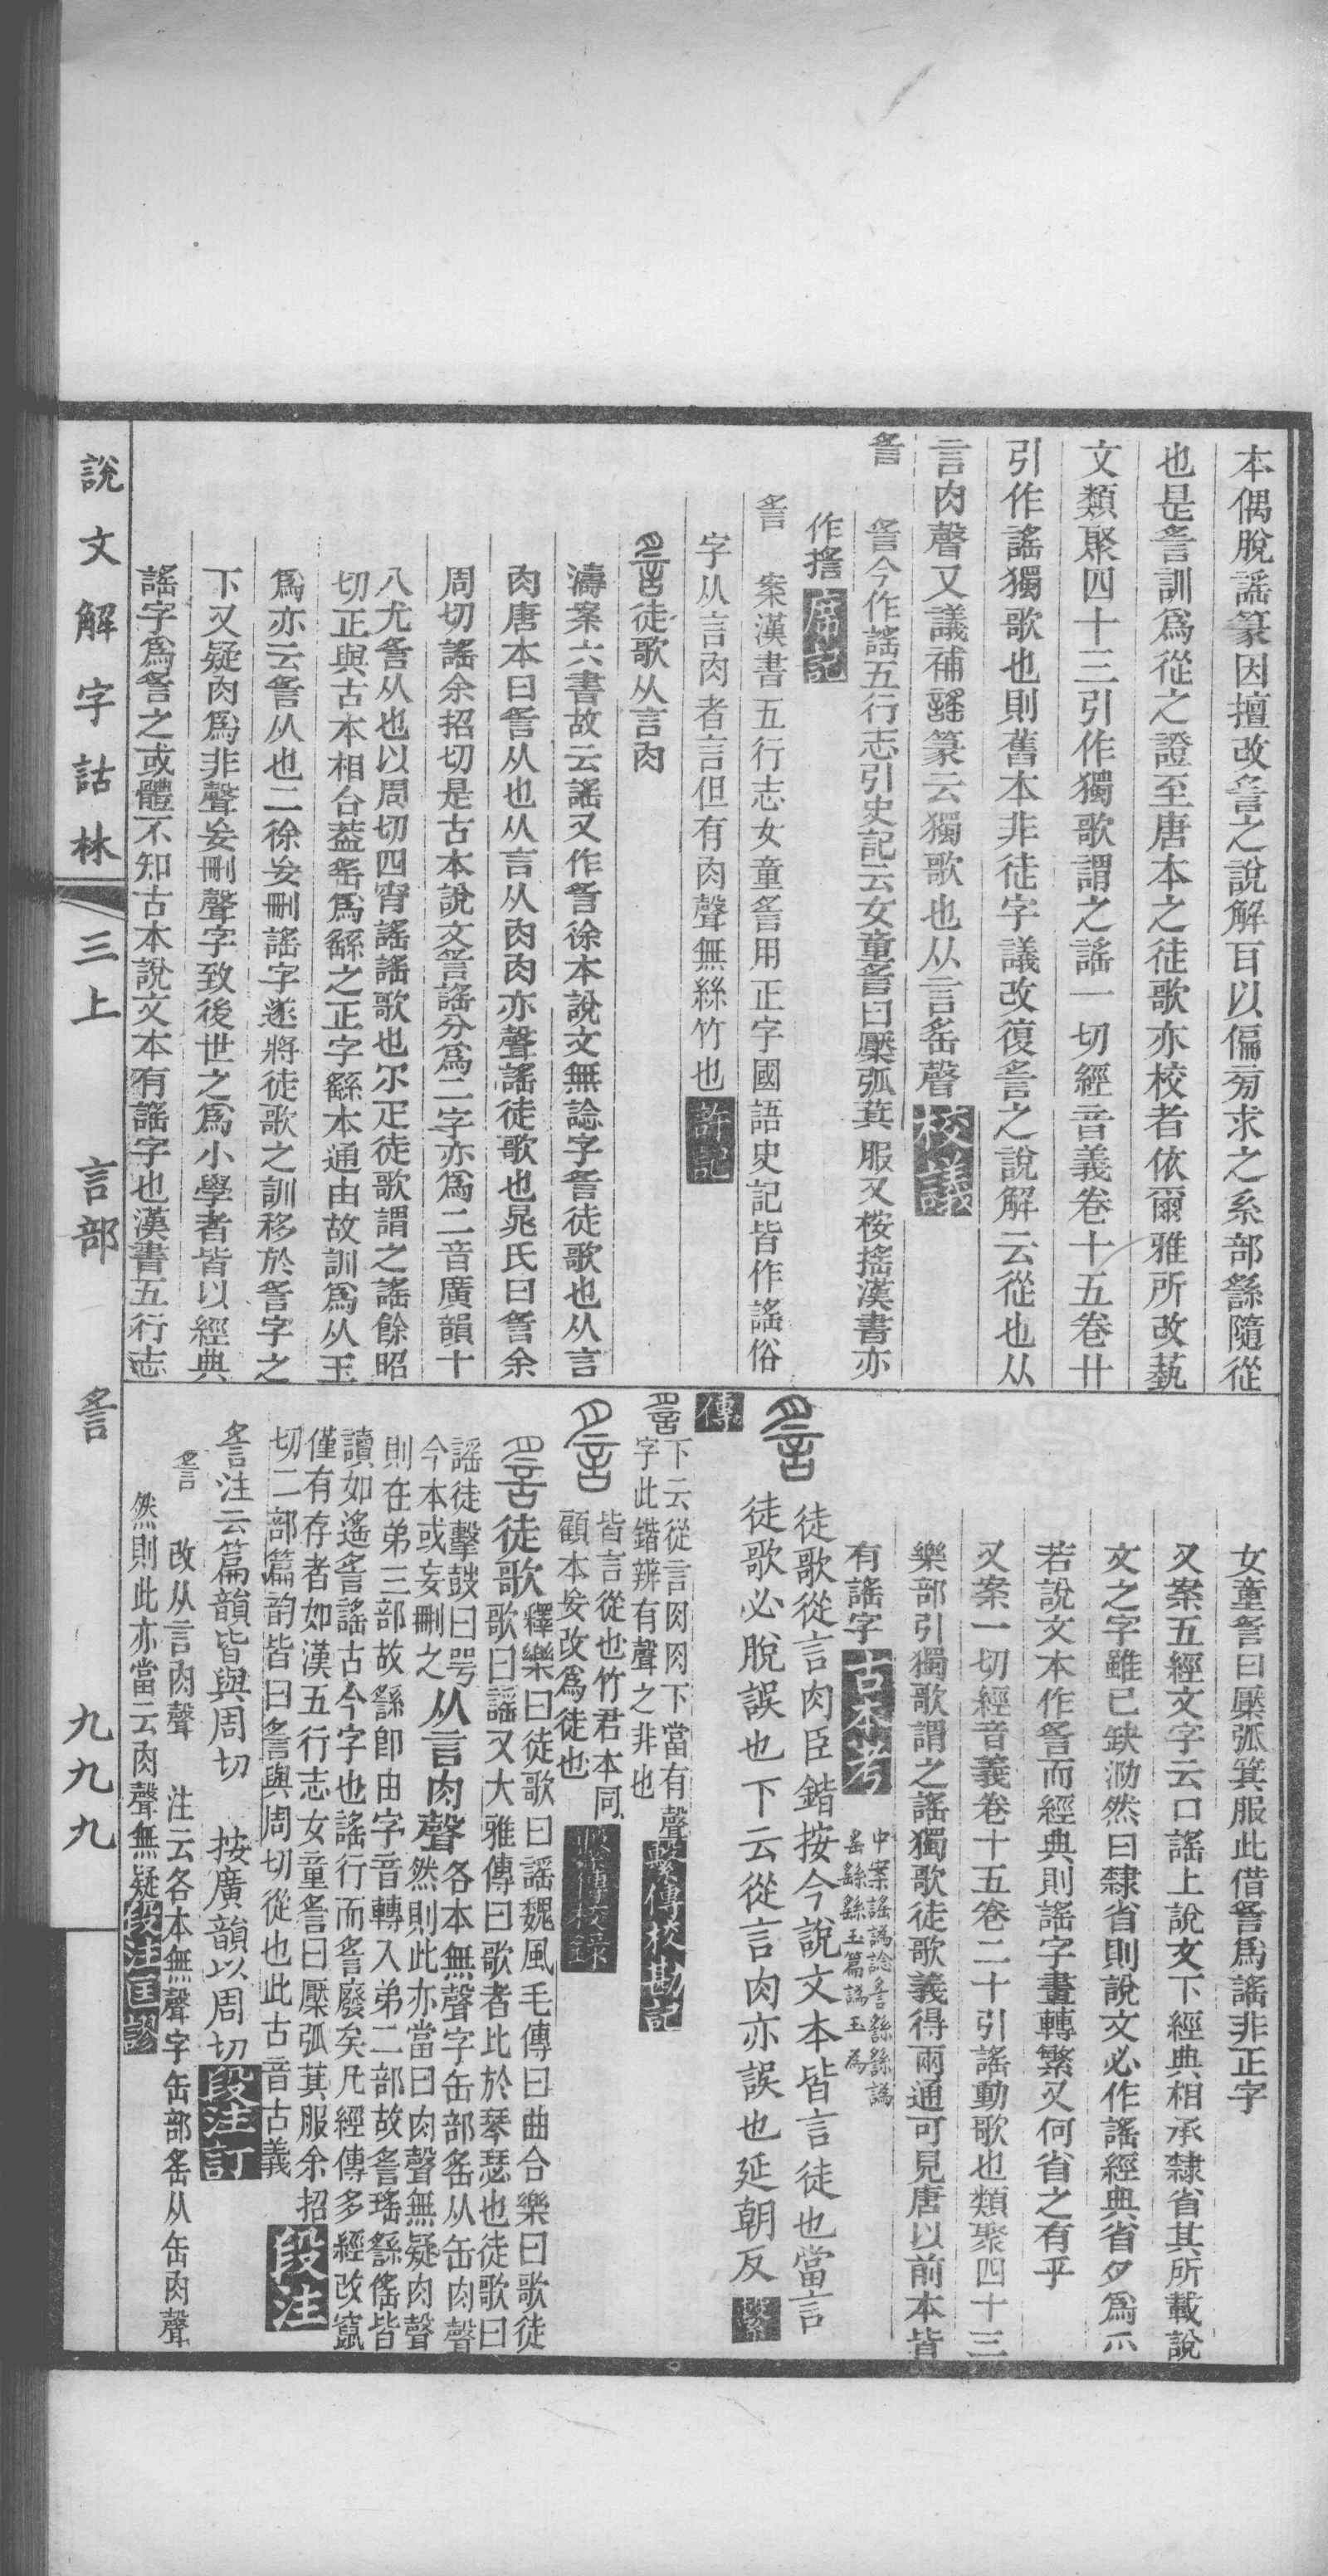 本偶脫謠篆因擅改䚻之說解耳以偏旁求之系部繇隨從
也是䚻訓爲從之證至唐本之徒歌亦校者依爾雅所改藝
文類聚四十三引作獨歌謂之謠一切經音義卷十五卷廿
引作謠獨歌也則舊本非徒字議改復䚻之說解云從也从
言肉聲又議補謠篆云獨歌也从言䍃聲 校議
䚻 䚻今作謠五行志引史記云女童䚻曰檿弧萁服又桉搖漢書亦
作㨱 席記
䚻 案漢書五行志女童䚻用正字國語史記皆作謠俗
字从言肉者言但有肉聲無絲竹也 許記
䚻徒歌从言肉
濤案六書故云謠又作䚻徐本說文無謠字䚻徒歌也从言
肉唐本曰䚻从也从言从肉肉亦聲謠徒歌也晁氏曰䚻余
周切謠余招切是古本說文䚻謠分爲二字亦爲二音廣韻十
八尤䚻从也以周切四宵謠謠歌也尔疋徒歌謂之謠餘昭
切正與古本相合葢䚻爲繇之正字繇本通由故訓爲从玉
爲亦云䚻从也二徐妄刪謠字遂將徒歌之訓移於䚻字之
下又疑肉爲非聲妄刪聲字致後世之爲小學者皆以經典
謠字爲䚻之或體不知古本說文本有謠字也漢書五行志
女童䚻曰檿弧箕服此借䚻爲謠非正字
又案五經文字云口謠上說文下經典相承隸省其所載說
文之字雖已缺泐然曰隸省則說文必作謠經典省夕爲爫
若說文本作䚻而經典則謠字畫轉繁又何省之有乎
又案一切經音義卷十五卷二十引謠動歌也類聚四十三
樂部引獨歌謂之謠獨歌徒歌義得兩通可見唐以前本皆
有謠字 古本考
䚻 徒歌從言肉臣鍇按今說文本皆言徒也當言
徒歌必脫誤也下云從言肉亦誤也延朝反 繫
傳
䚻 下云從言肉肉下當有聲
字此鍇辨有聲之非也 繫傳校勘記
䚻 皆言從也竹君本同
顧本妄改爲徒也 繫傳校錄
䚻徒歌 釋樂曰徒歌曰謠魏風毛傳曰曲合樂曰歌徒
歌曰謠又大雅傳曰歌者比於琴瑟也徒歌曰
謠徒擊鼓曰咢
今本或妄刪之 从言肉聲 各本無聲字缶部䍃从缶肉聲
然則此亦當曰肉聲無疑肉聲
則在弟三部故繇卽由字音轉入弟二部故䚻瑤繇傜皆
讀如遙䚻謠古今字也謠行而䚻廢矣凡經傳多經改竄
僅有存者如漢五行志女童䚻曰檿弧萁服余招
切二部篇韵皆曰䚻與周切從也此古音古義 段注
䚻注云篇韻皆與周切 按廣韻以周切 段注訂
䚻 改从言肉聲 注云各本無聲字缶部䍃从缶肉聲
然則此亦當云肉聲無疑 段注匡謬
說文解字詁林 三上 言部 䚻 九九九